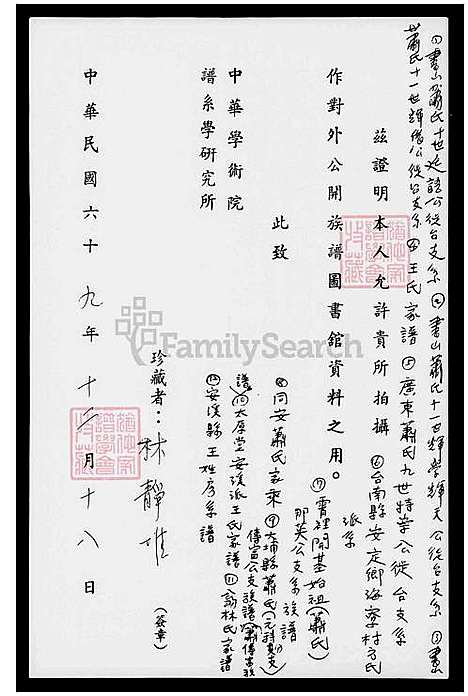 ①書山蕭氏十世延諒公從台支系②書山蕭氏十一世輝学輝天公從台支系③書山
蕭氏十一世輝僯公從台支系④王氏家譜⑤廣東蕭氏九世特峯公從台支系
茲證明本人允許貴所拍攝
⑥台南縣安定鄉海寮村方氏
派系
作對外公開族譜圖書館資料之用。
⑦霄裡開基始祖(蕭氏)
那英公支系族譜
此致
⑧同安蕭氏家乘⑨大埔縣蕭氏(元穆勤支)
傳富公支族譜
中華學術院
譜⑩太原堂安溪派王氏家譜⑪翁林氏家譜
譜系學研究所
⑫安溪縣王姓房系譜
珍藏者:林靜惟
(簽章)
中華民國六十九年十二月十八日
FamilySearch